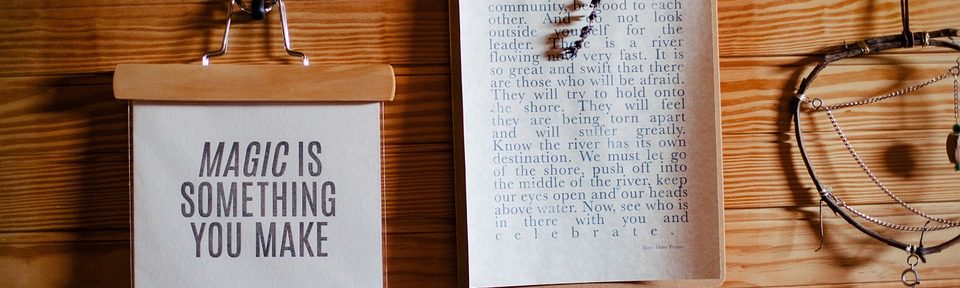 MAGIC IS
SOMETHING
YOU MAKE
community, be good to each
other. And do not look
outside yourself for the
leader. There is a river
flowing now very fast. It is
so great and swift that there
are those who will be afraid.
They will try to hold onto
the shore. They will feel
they are being torn apart
and will suffer greatly.
Know the river has its own
destination. We must let go
of the shore, push off into
the middle of the river, keep
our eyes open and our heads
above water. Now, see who is
in there with you and
celebrate.
Hopi Elders Prayer